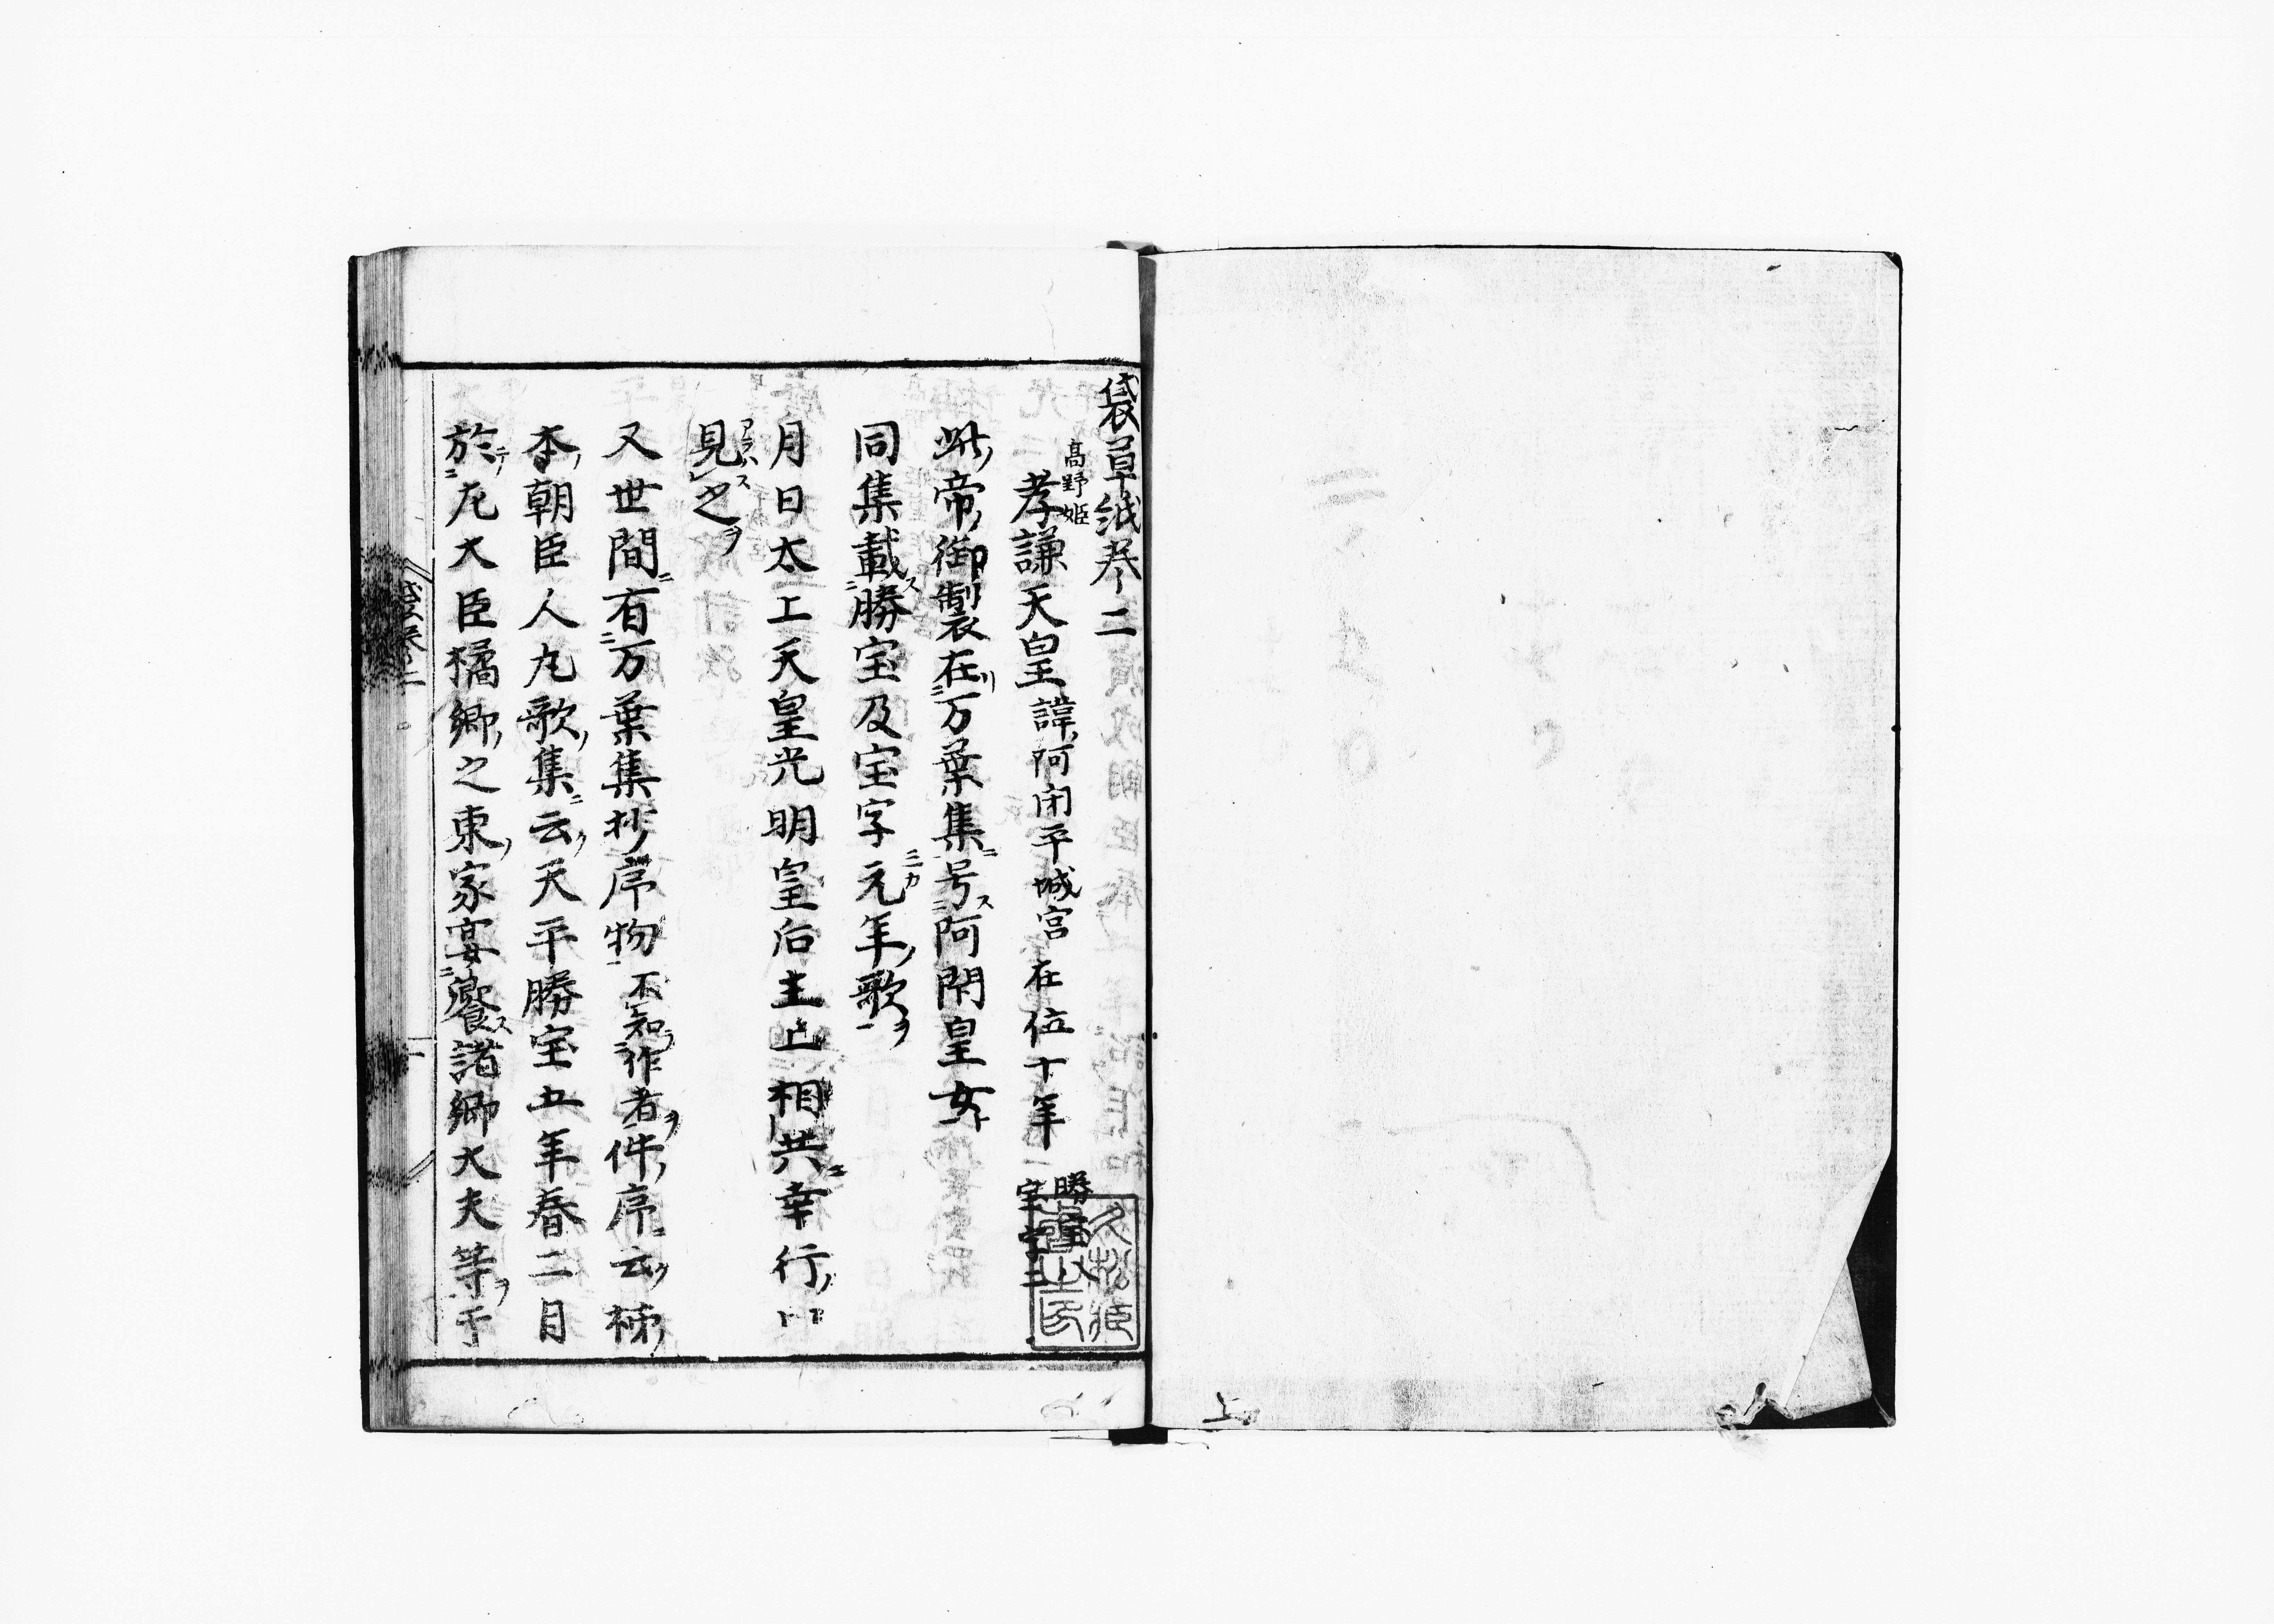 袋草紙巻二
高野姫
孝謙天皇 諱阿閇平城宮 在位十年 勝宝八 宝字二
此帝御製在万葉集号阿閇皇女
同集載勝宝及宝字元年歌
月日太上天皇光明皇后主上相共幸行
見之
又世間有万葉集抄序物 不知作者 件序云柿
本朝臣人丸歌集云天平勝宝五年春二月
於左大臣橘卿之東家宴饗諸卿大夫等于
上